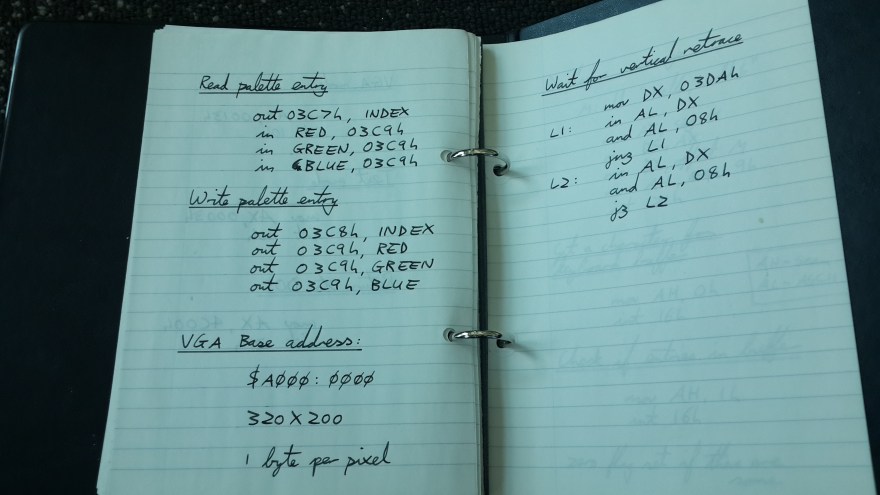 Read palette entry
out 03C7h, INDEX
in RED, 03C9h
in GREEN, 03C9h
in BLUE, 03C9h
Write palette entry
out 03C8h, INDEX
out 03C9h, RED
out 03C9h, GREEN
out 03C9h, BLUE
VGA Base address:
$AØØØ:ØØØØ
320X200
1 byte per pixel
Wait for vertical retrace
mov DX, 03DAh
L1: in AL, DX
and AL, 08h
jnz L1
L2: in AL, DX
and AL, 08h
jz L2